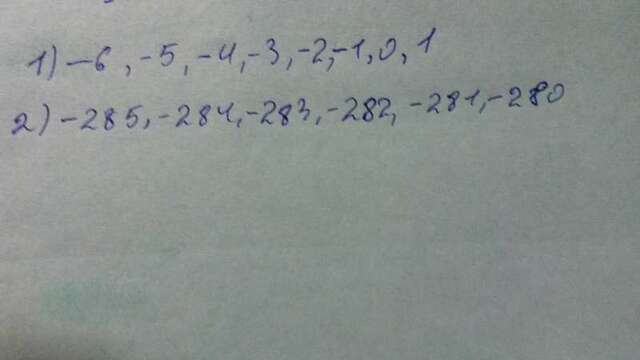 1) -6, -5, -4, -3, -2, -1, 0, 1
2) -285, -284, -283, -282, -281, -280